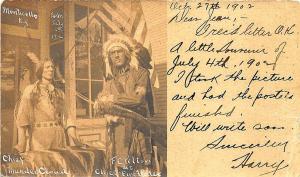 Monticello
Ky
July
4th
1902
Chief
Thunder Cloud
F C
as
Chief
Oct 27th 1902
Dear Jean,—
Rec'd letter O.K.
A little souvenir of
July 4th, 1902.
I took the picture
and had the postals
finished.
Will write soon.
Sincerely
Harry